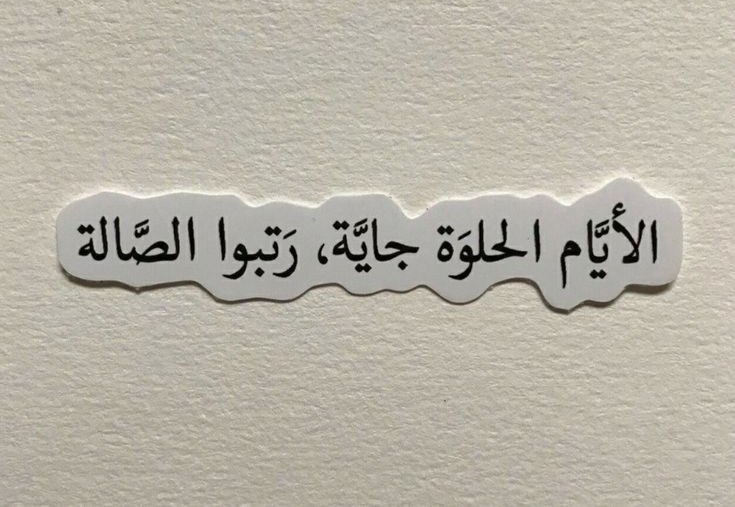 الأيَّام الحلوَة جايَّة، رَتبوا الصَّالة